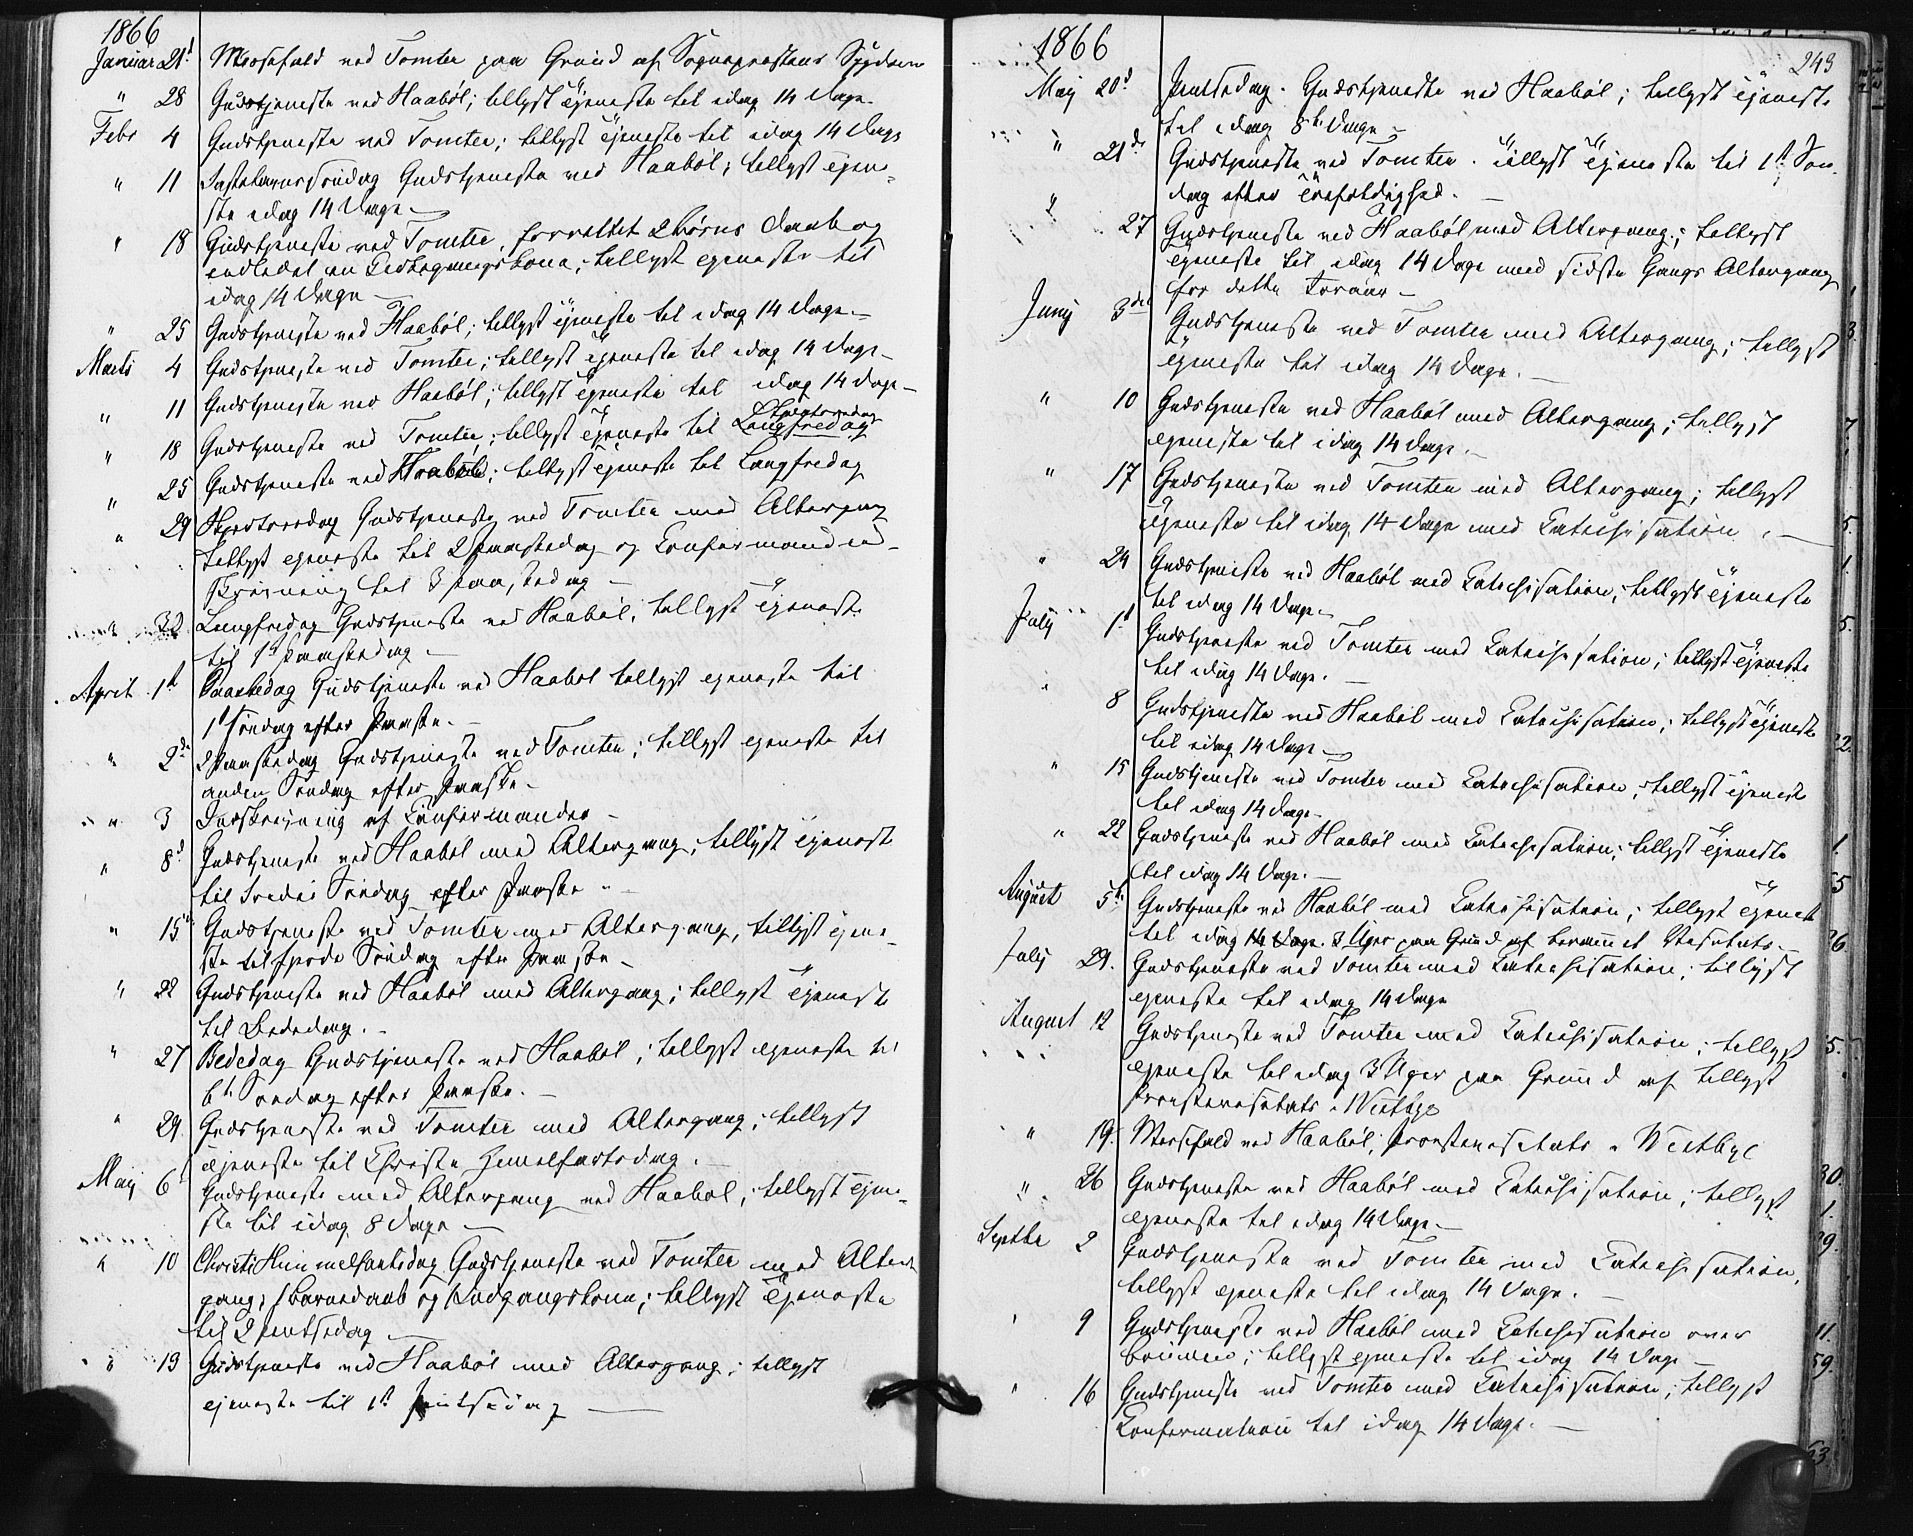 1866
Januar 21d Messefald ved Tomter paa Grund af Sognepræstens Sygdom
" 28 Gudstjeneste ved Haabøl; tillyst Tjeneste til idag 14 Dage.
Febr 4 Gudstjeneste ved Tomter; tillyst Tjeneste til idag 14 Dage
" 11 Fastelavnssøndag Gudstjeneste ved Haabøl; tillyst Tjene-
ste idag 14 Dage.
" 18 Gudstjeneste ved Tomter, forrettet 2 Børns Daab og
indledet en Kirkegangskone; tillyst Tjeneste til
idag 14 Dage
" 25 Gudstjeneste ved Haabøl; tillyst Tjeneste til idag 14 Dage.
Marts 4 Gudstjeneste ved Tomter; tillyst Tjeneste til idag 14 Dage
" 11 Gudstjeneste ved Haabøl; tillyst Tjeneste til idag 14 Dage
" 18 Gudstjeneste ved Tomter; tillyst Tjeneste til Skjertorsdag Langfredag
" 25 Gudstjeneste ved Haabøl; tillyst Tjeneste til Langfredag
" 29 Skjertorsdag Gudstjeneste ved Tomter med Altergang
tillyst Tjeneste til 2 Paaskedag og Confirmandind-
skrivning til 3 Paaskedag
" 30 Langfredag Gudstjeneste ved Haabøl; tillyst Tjeneste
til 1st Paaskedag.
April 1st Paaskedag Gudstjeneste ved Haabøl tillyst Tjeneste til
1st Søndag efter Paaske.
" 2de 2 Paaskedag Gudstjeneste ved Tomter; tillyst Tjeneste til
anden Søndag efter Paaske.
" 3 Indskrivning af Confirmander
" 8d Gudstjeneste ved Haabøl med Altergang; tillyst Tjeneste
til tredie Søndag efter Paaske
" 15d Gudstjeneste ved Tomter med Altergang, tillyst Tjene-
ste til fjerde Søndag efter Paaske
" 22 Gudstjeneste ved Haabøl med Altergang; tillyst Tjeneste
til Bededag.
" 27 Bededag Gudstjeneste ved Haabøl; tillyst Tjeneste til
6te Søndag efter Paaske.
" 29. Gudstjeneste ved Tomter med Altergang; tillyst
Tjeneste til Christi Himelfartsdag.
May 6 Gudstjeneste med Altergang ved Haabøl; tillyst Tjene-
ste til idag 8 Dage
" 10 Christi Himmelfartsdag Gudstjeneste ved Tomter med Alter-
gang, 1 Barnedaab og 1 Indgangskone; tillyst Tjeneste
til 2 Pintsedag
" 13 Gudstjeneste ved Haabøl med Altergang; tillyst
Tjeneste til 1st Pintsedag
243
1866
May 20d Pintsedag. Gudstjeneste ved Haabøl; tillyst Tjeneste
til idag 8te Dage
" 21de Gudstjeneste ved Tomter. tillyst Tjeneste til 1st Søn-
dag efter Trefoldighed.
" 27 Gudstjeneste ved Haabøl med Altergang; tillyst
Tjeneste til idag 14 Dage med sidste Gangs Altergang
for dette Foraar
Juny 3die Gudstjeneste ved Tomter med Altergang; tillyst
Tjeneste til idag 14 Dage.
" 10 Gudstjeneste ved Haabøl med Altergang; tillyst
Tjeneste til idag 14 Dage.
" 17 Gudstjeneste ved Tomter med Altergang; tillyst
Tjeneste til idag 14 Dage med Catechisation.
" 24 Gudstjeneste ved Haabøl med Catechisation; tillyst Tjeneste
til idag 14 Dage.
July 1st Gudstjeneste ved Tomter med Catechisation; tillyst Tjeneste
til idag 14 Dage.
" 8 Gudstjeneste ved Haabøl med Catechisation; tillyst Tjeneste
til idag 14 Dage
" 15 Gudstjeneste ved Tomter med Catechisation; tillyst Tjeneste
til idag 14 Dage.
" 22 Gudstjeneste ved Haabøl med Catechisation; tillyst Tjeneste
til idag 14 Dage.
August 5te Gudstjeneste ved Haabøl med Catechisation; tillyst Tjeneste
til idag 14 Dage 3 Uger paa Grund af berammet Visitats.
July 29. Gudstjeneste ved Tomter med Catechisation; tillyst
Tjeneste til idag 14 Dage
August 12 Gudstjeneste ved Tomter med Catechisation; tillyst
Tjeneste til idag 3 Uger paa Grund af tillyst
Provstevisitats i Westbye
" 19. Messefald ved Haabøl; Provstevisitats i Westbye
" 26 Gudstjeneste ved Haabøl med Catechisation; tillyst
Tjeneste til idag 14 Dage.
Septbr 2 Gudstjeneste ved Tomter med Catechisation,
tillyst Tjeneste til idag 14 Dage.
" 9 Gudstjeneste ved Haabøl med Catechisation over
Bønnen; tillyst Tjeneste til idag 14 Dage
" 16 Gudstjeneste ved Tomter med Catechisation; tillyst
Confirmation til idag 14 Dage.